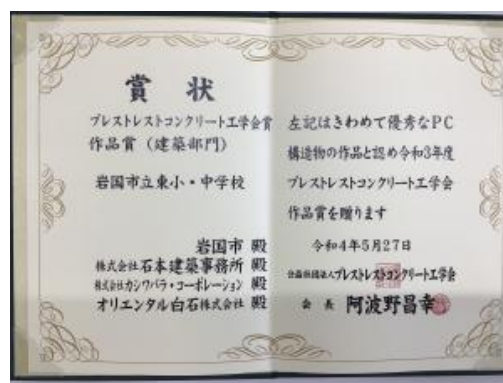 賞状
プレストレストコンクリート工学会賞
作品賞（建築部門）
岩国市立東小・中学校
岩国市 殿
株式会社石本建築事務所 殿
株式会社カシワバラ・コーポレーション 殿
オリエンタル白石株式会社 殿
左記はきわめて優秀なPC
構造物の作品と認め令和3年度
プレストレストコンクリート工学会
作品賞を贈ります
令和4年5月27日
公益社団法人プレストレストコンクリート工学会
会長 阿波野昌幸